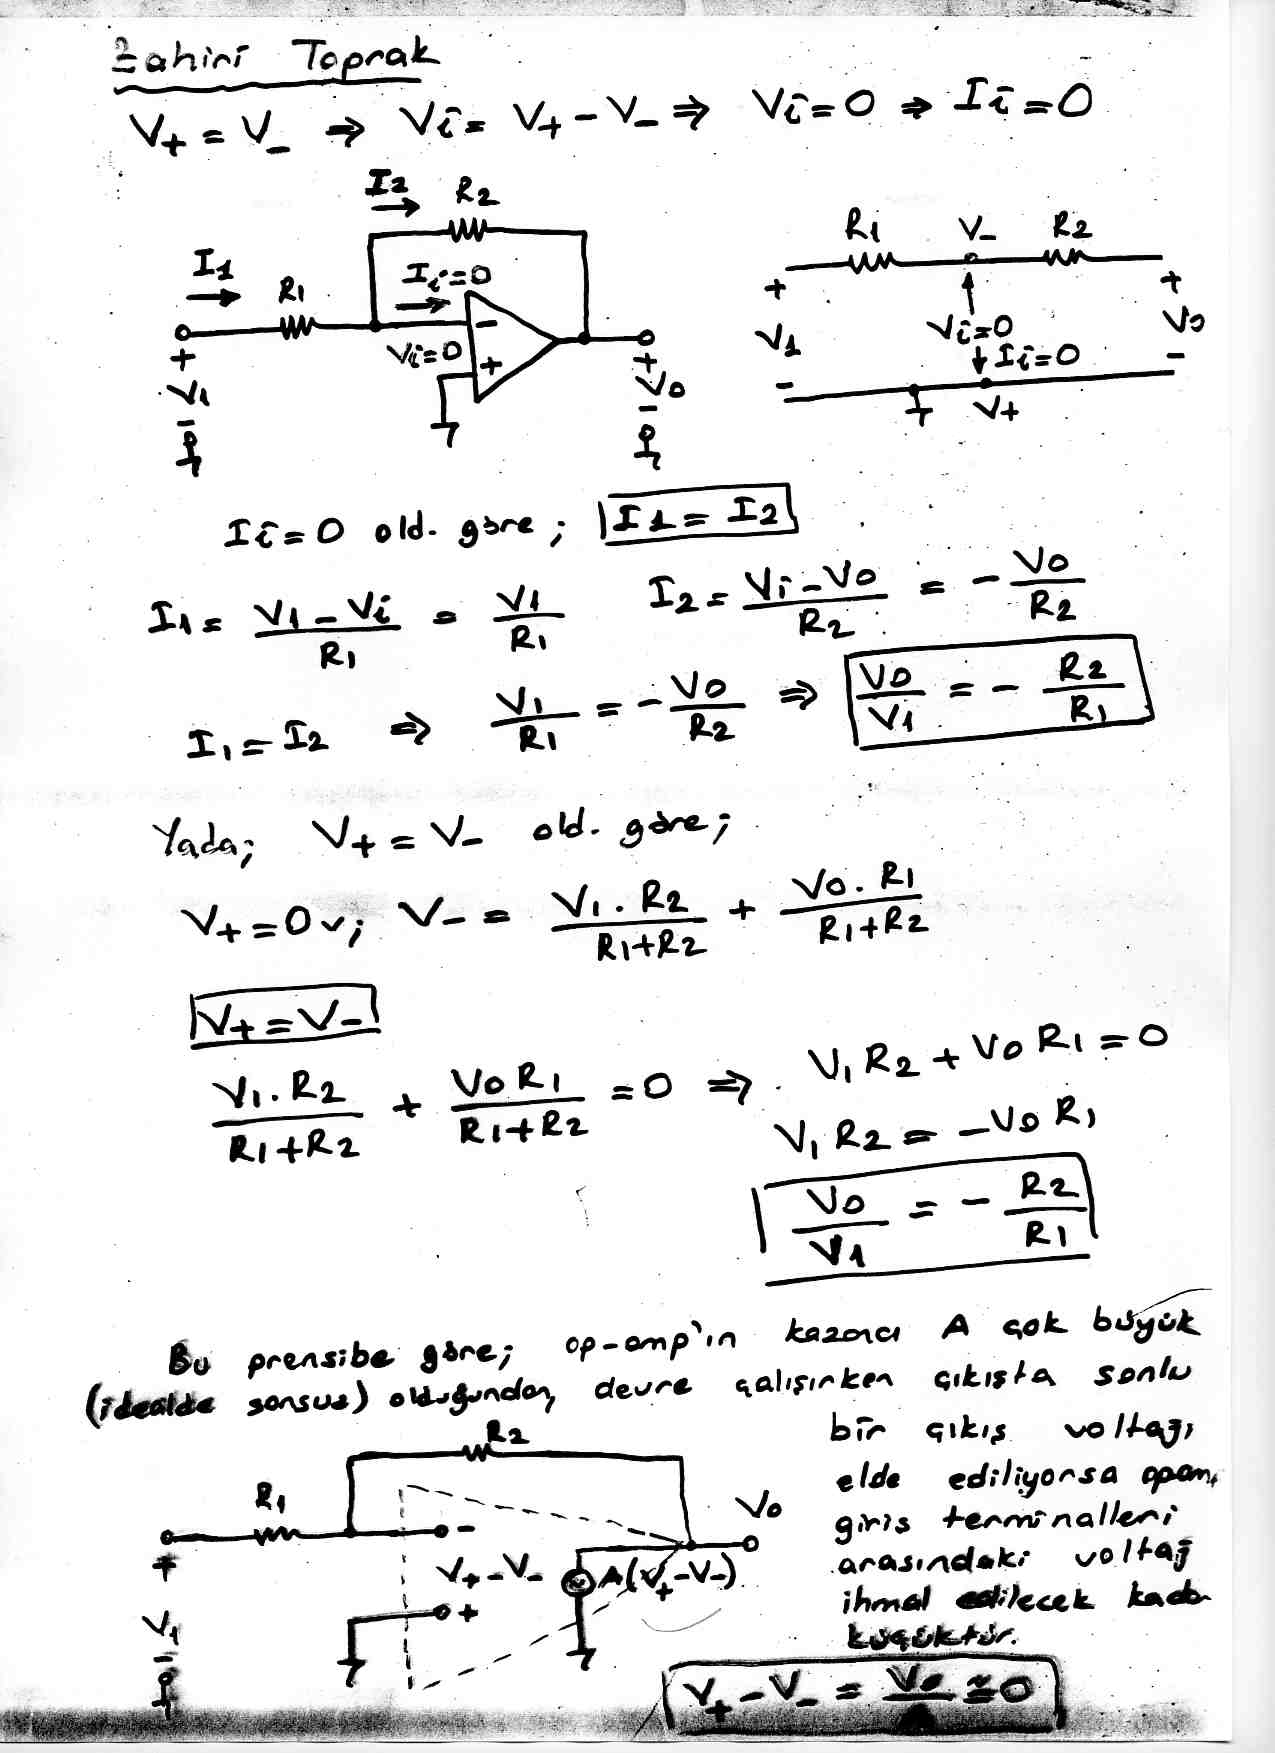 Zahiri Toprak
V+ = V- ⇒ Vi = V+ - V- ⇒ Vi = 0 ⇒ Ii = 0
I2 R2
I1 R1 Ii = 0
Vi = 0
- +
+ V1 -
+ V0 -
R1 V- R2
+ V1 -
Vi = 0
Ii = 0
V+
+ V0 -
Ii = 0 old. göre ; I1 = I2
I1 = (V1 - Vi)/R1 = V1/R1 I2 = (Vi - V0)/R2 = - V0/R2
I1 = I2 ⇒ V1/R1 = - V0/R2 ⇒ V0/V1 = - R2/R1
Yada; V+ = V- old. göre;
V+ = 0 v; V- = (V1 . R2)/(R1+R2) + (V0 . R1)/(R1+R2)
V+ = V-
(V1 . R2)/(R1+R2) + (V0 R1)/(R1+R2) = 0 ⇒ V1 R2 + V0 R1 = 0
V1 R2 = - V0 R1
V0/V1 = - R2/R1
Bu prensibe göre; op-amp'ın kazancı A çok büyük
(idealde sonsuz) olduğundan, devre çalışırken çıkışta sonlu
bir çıkış voltajı
elde ediliyorsa opam
giris terminalleri
arasındaki voltaj
ihmal edilecek kadar
küçüktür.
R2
R1
-
V+ - V-
+
A(V+ - V-)
V0
+ V1 -
V+ - V- = V0/A ≅ 0